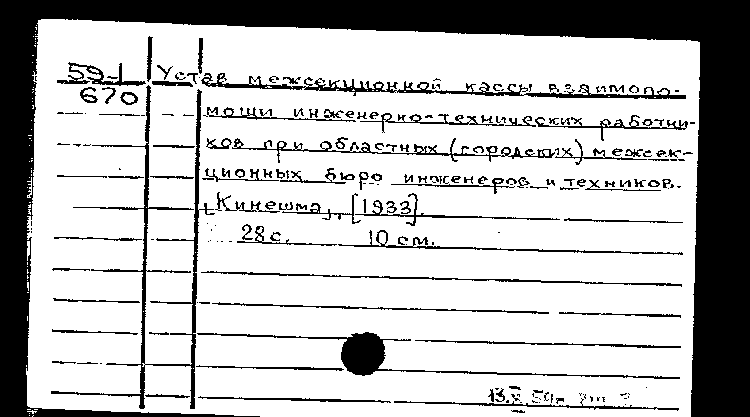 59-1 Устав межсекционной кассы взаимопо-
670
мощи инженерно-технических работни-
ков при областных (городских) межсек-
ционных бюро инженеров и техников.
[Кинешма], [1933].
28 с. 10 см.
13.X.59г.